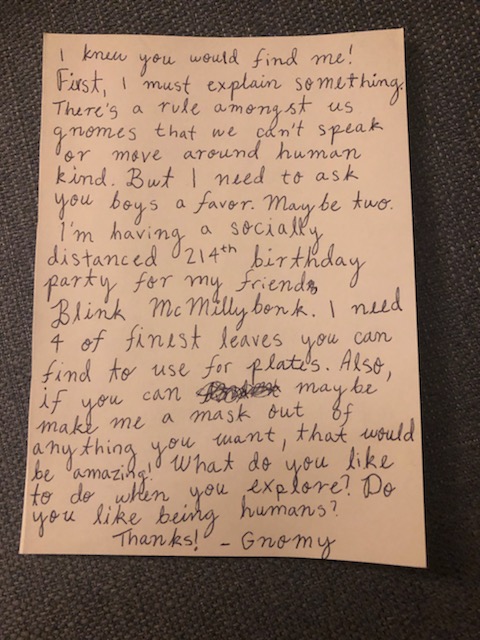 I knew you would find me!
First, I must explain something.
There's a rule amongst us
gnomes that we can't speak
or move around human
kind. But I need to ask
you boys a favor. Maybe two.
I'm having a socially
distanced 214th birthday
party for my friend,
Blink McMillybonk. I need
4 of finest leaves you can
find to use for plates. Also,
if you can maybe
make me a mask out of
anything you want, that would
be amazing! What do you like
to do when you explore? Do
you like being humans?
Thanks! - Gnomy